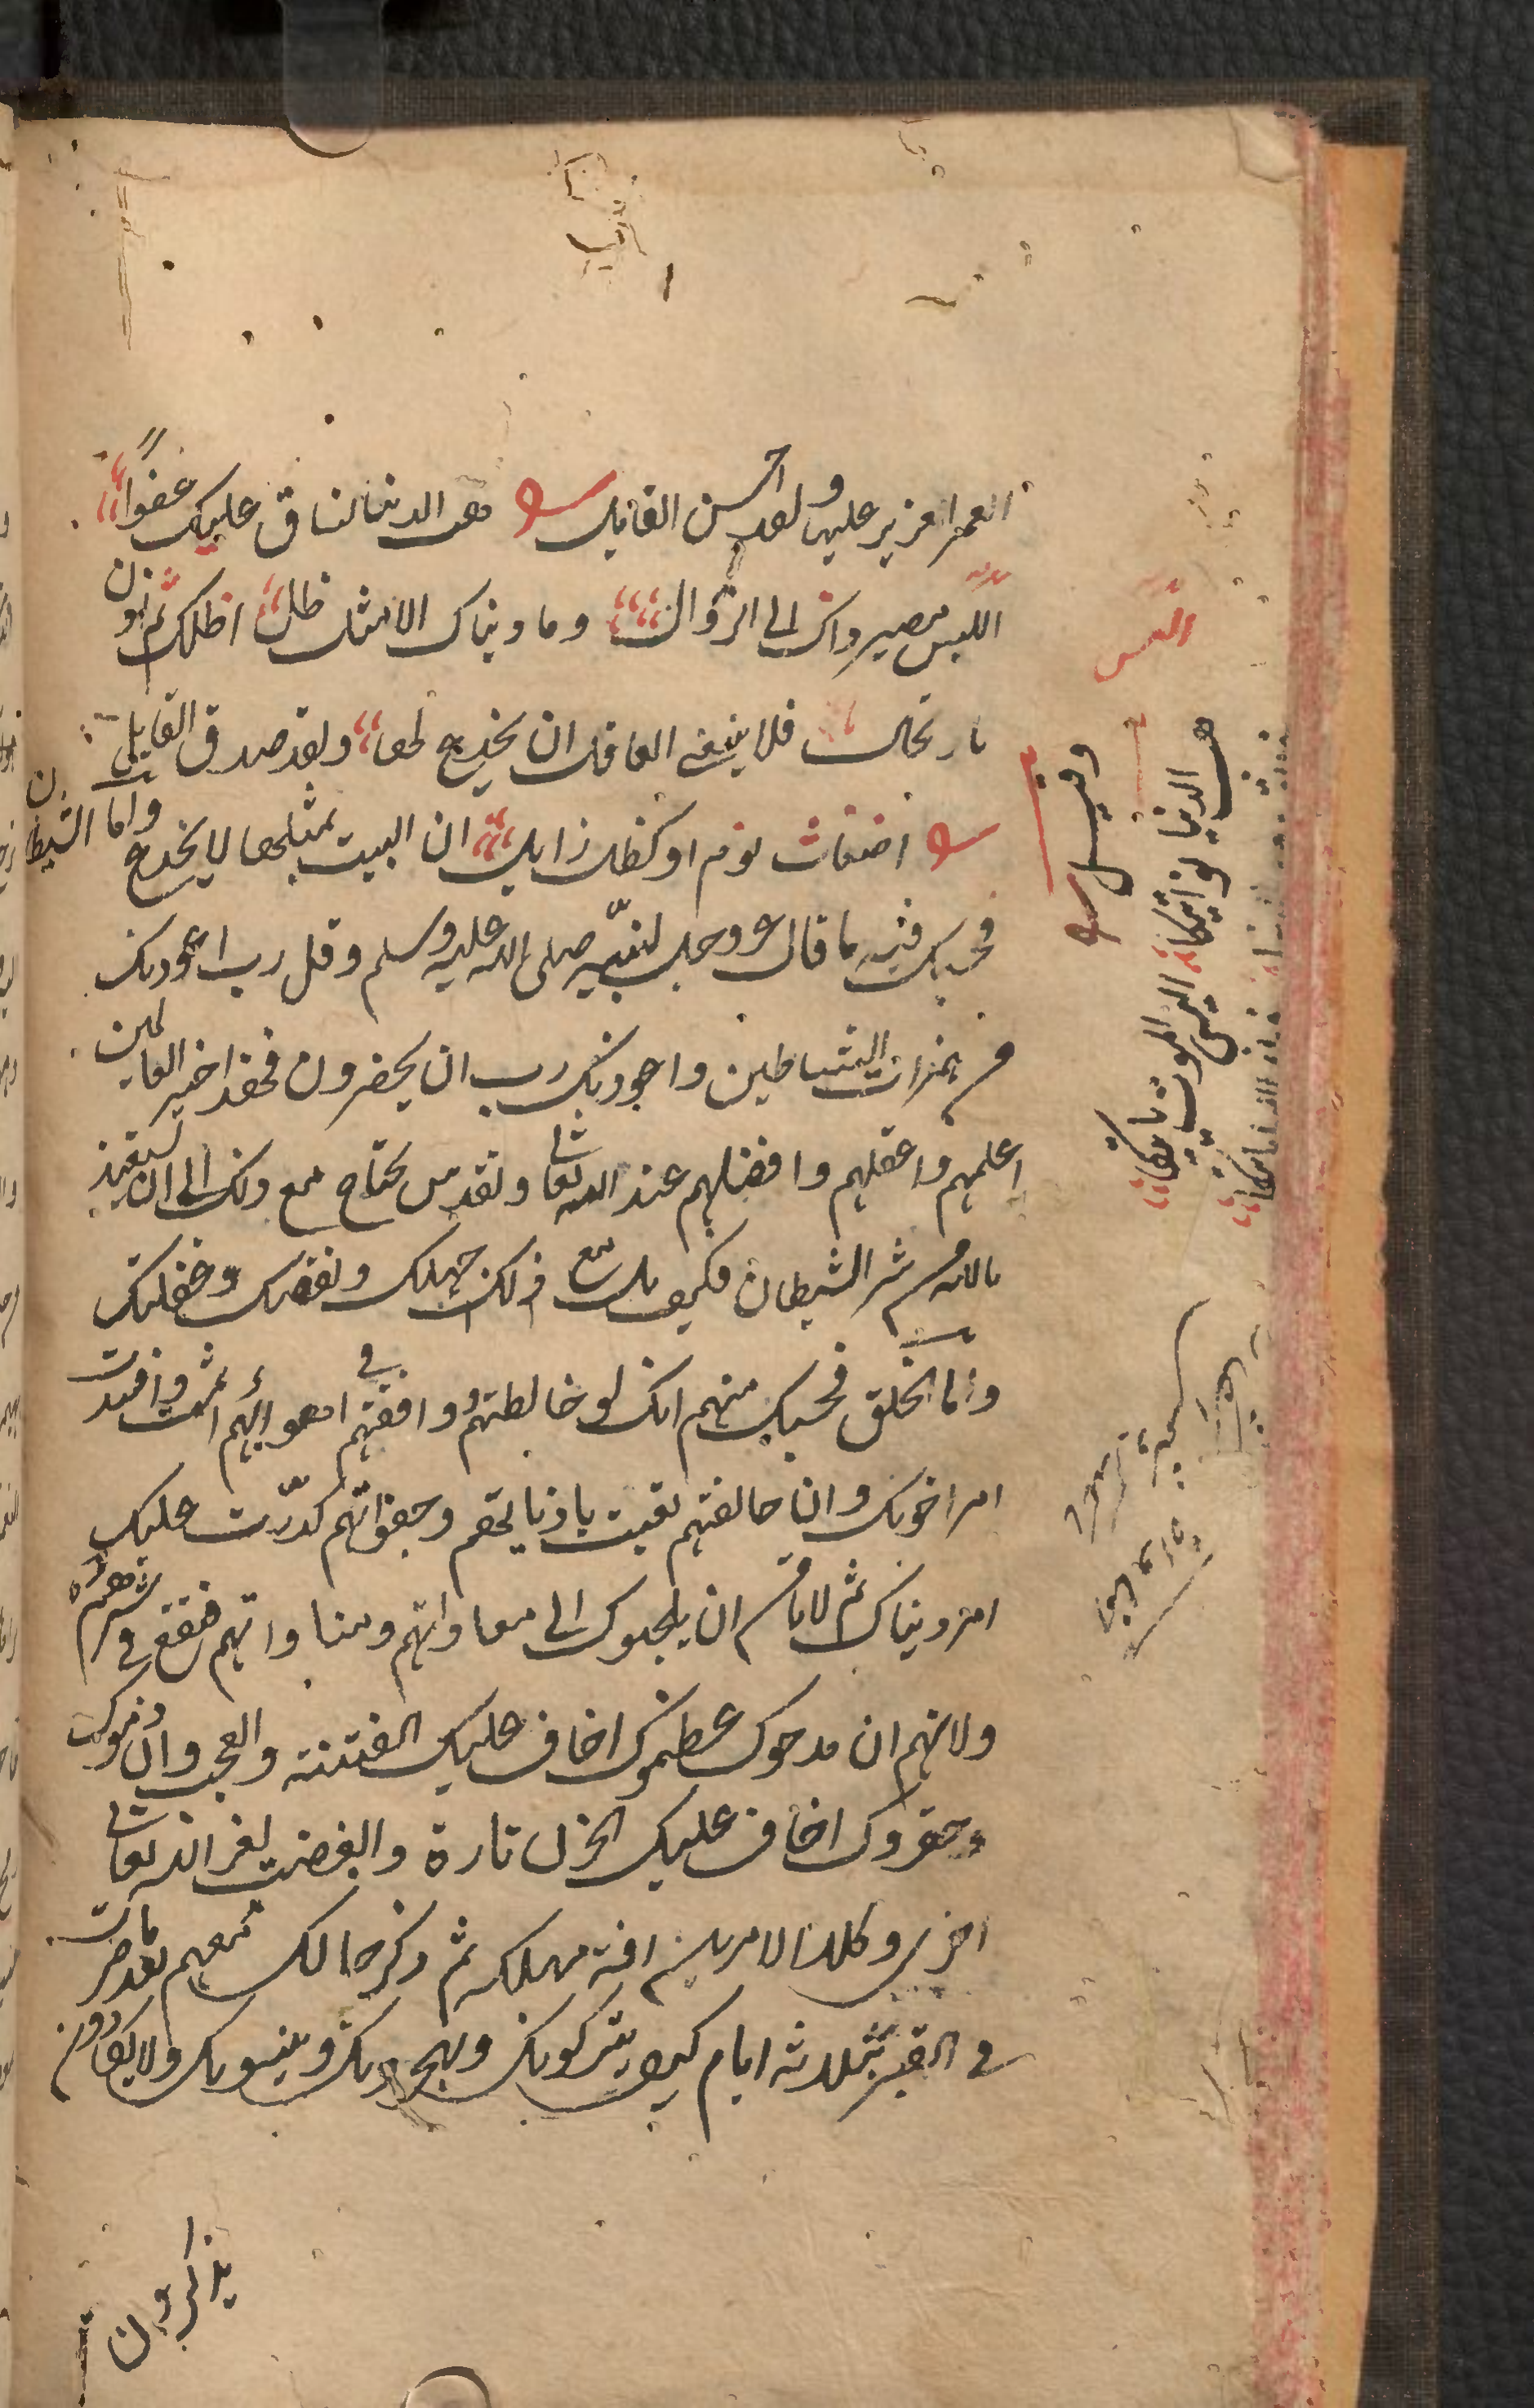 العمر العزيز عليها ولقد احسن القايل هب الدنيا تساق عليك عفوا
اليس مصير ذاك الى الزوال وما دنياك الا مثل ظل اظلك ثم اذن
بارتحال فلا ينبغي العاقل ان يخدع لها ولقد صدق القايل
اضغاث نوم او كظل زايل ان اللبيب بمثلها لا يخدع واما الشيطان
فحسبك فيه ما قال عز وجل لنبيه صلى الله عليه وسلم وقل رب اعوذ بك
من همزات الشياطين واعوذ بك رب ان يحضرون فهذا خير العالمين
اعلمهم واعقلهم وافضلهم عند الله تعالى ولقد يحتاج مع ذلك الى ان يستعيذ
بالله من شر الشيطان فكيف بك مع ذلك جهلك ونقصك وغفلتك
واما الخلق فحسبك منهم انك لو خالطتهم ووافقتهم في اهوائهم اثمت وافسدت
امر اخرتك وان خالفتهم تعبت باذياتهم وجفواتهم كدرت عليك
امر دنياك ثم لا تامن ان يلجوك الى معاداتهم ومناواتهم فتقع في شرهم
ولانهم ان مدحوك عظموك اخاف عليك الفتنة والعجب وان ذموك
وحقروك اخاف عليك الحزن تارة والغضب لغير الله تعالى
اخرى وكلا الامرين افة مهلكة ثم ذكر حالك معهم بعد ما صرت
في القبر بثلاثة ايام كيف يتركونك ويهجرونك وينسونك ولا يكادون
يذكرون
وقيل
هب الدنيا تواتيكا اليس الموت ياتيكا